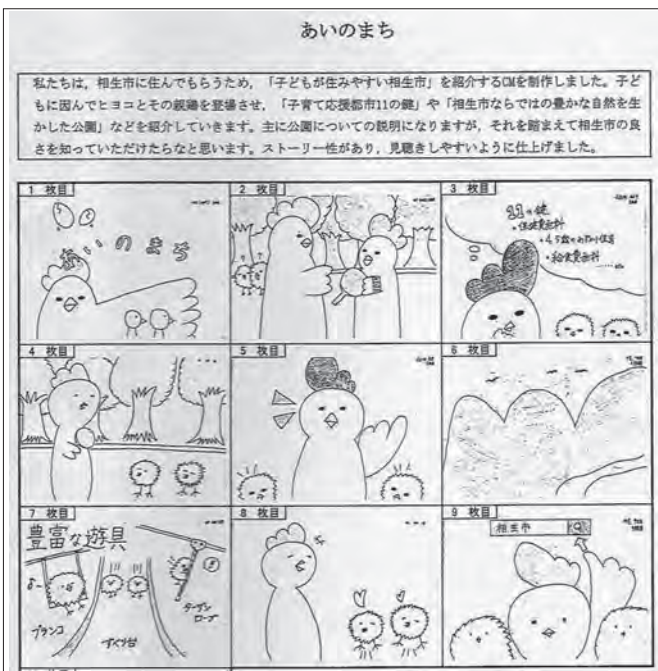 あいのまち
私たちは，相生市に住んでもらうため，「子どもが住みやすい相生市」を紹介するCMを制作しました。子ど
もに因んでヒヨコとその親鶏を登場させ，「子育て応援都市11の鍵」や「相生市ならではの豊かな自然を生
かした公園」などを紹介していきます。主に公園についての説明になりますが，それを踏まえて相生市の良
さを知っていただけたらなと思います。ストーリー性があり，見聴きしやすいように仕上げました。
1 枚目
あいのまち
2 枚目
3 枚目
11の鍵
・保健費無料
・給食費無料
4 枚目
5 枚目
6 枚目
7 枚目
豊富な遊具
ブランコ
すべり台
ターザン
ロープ
8 枚目
9 枚目
相生市